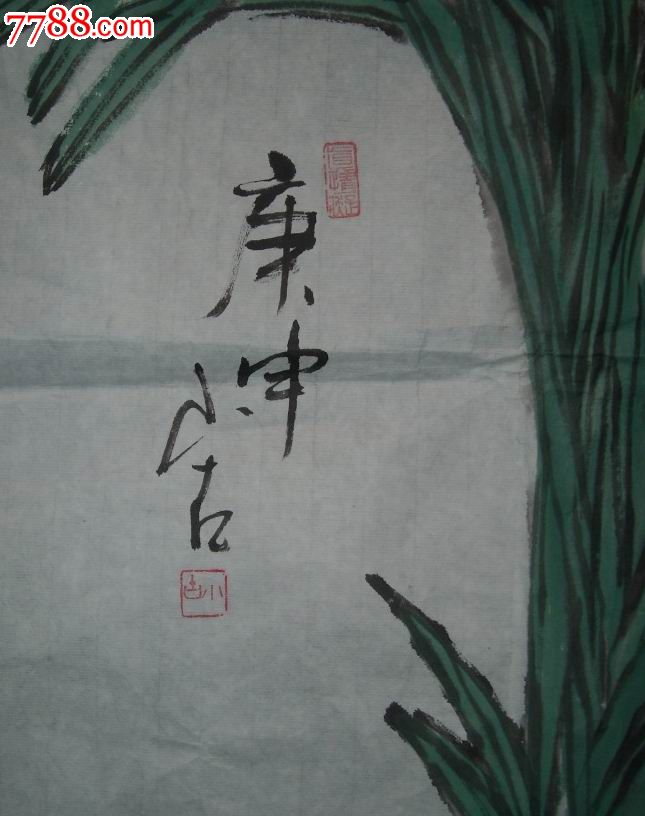 7788.com
庚申
小古
小古